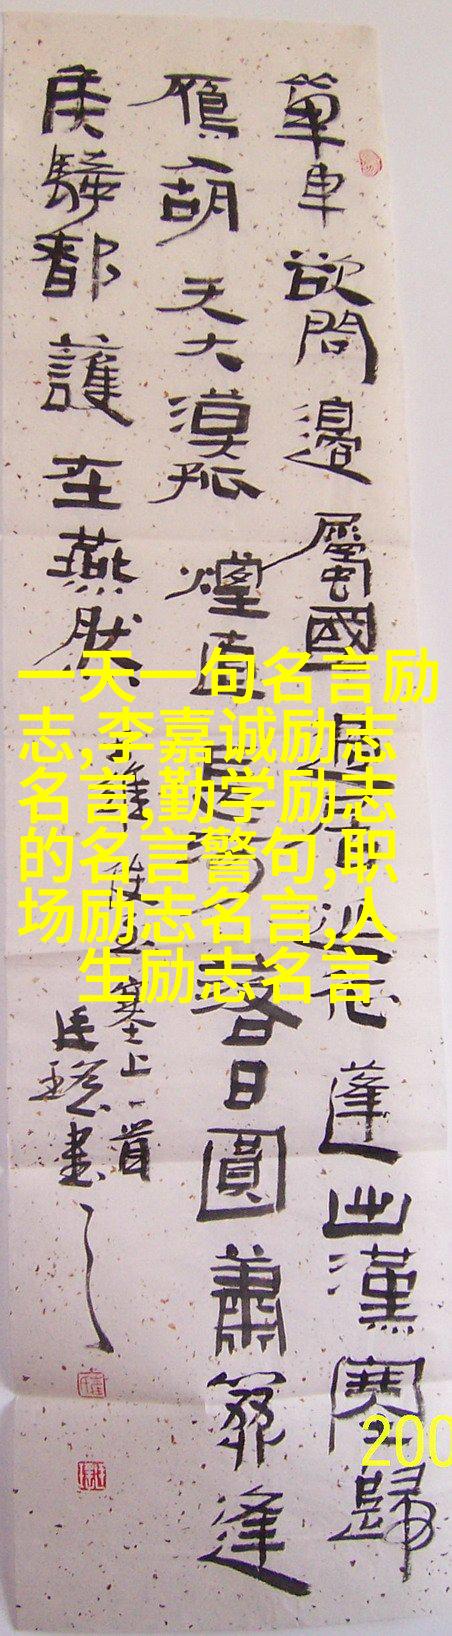 單車欲問邊屬國過居延征蓬出漢塞歸
鴈入胡天大漠孤煙直長河落日圓蕭關逢
候騎都護在燕然
王維使至塞上一首
書
一天一句名言励
志,李嘉诚励志
名言,勤学励志
的名言警句,职
场励志名言,人
生励志名言
200